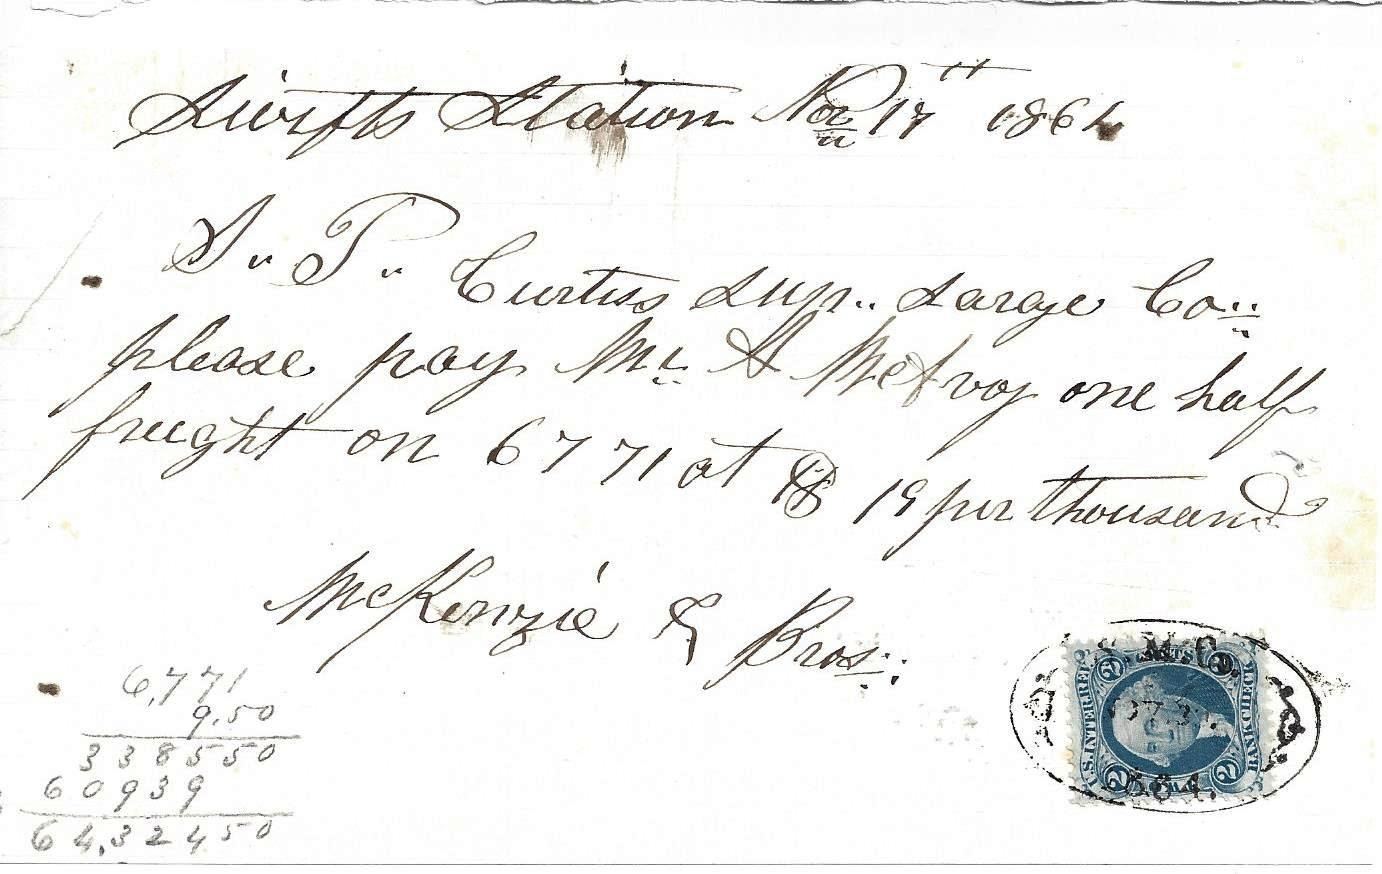 Swifts Station Nov 17th 1864
S. T. Curtiss Sup. Large Co.
please pay Mr A McEvoy one half
freight on 6771 at 18 19 per thousand
McKenzie & Bros.
6,771
9.50
338550
60939
64,32450
S.M.Co.
U.S. INTER. REV.
BANK CHECK
2 2
2 2